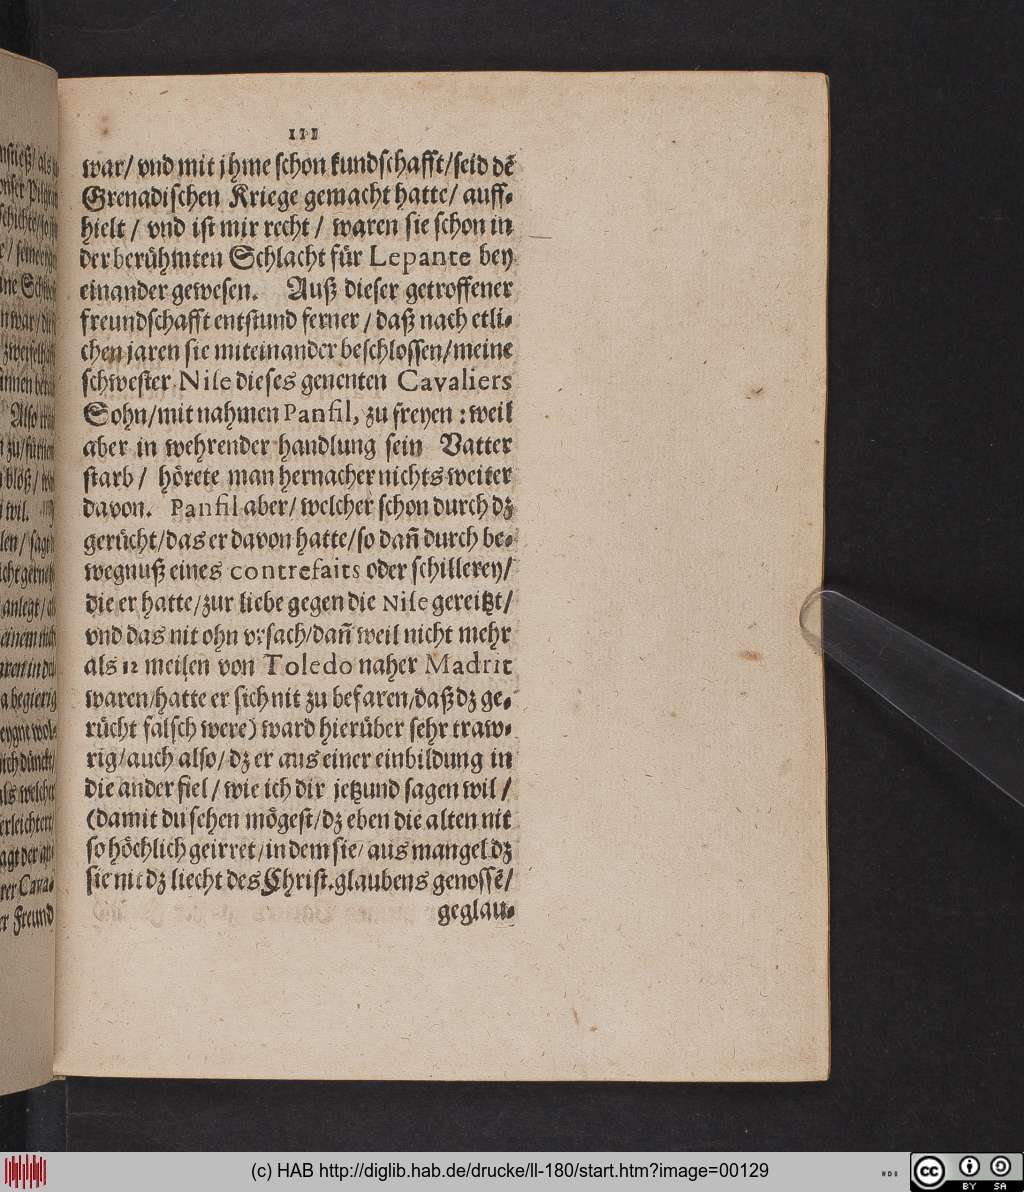 111
war/ vnd mit jhme schon kundschafft/seid dẽ
Grenadischen Kriege gemacht hatte/ auff-
hielt / vnd ist mir recht / waren sie schon in
der berühmten Schlacht für Lepante bey
einander gewesen. Auß dieser getroffener
freundschafft entstund ferner / daß nach etli-
chen jaren sie miteinander beschlossen/meine
schwester Nile dieses genenten Cavaliers
Sohn/mit nahmen Panfil, zu freyen : weil
aber in wehrender handlung sein Vatter
starb / hörete man hernacher nichts weiter
davon. Panfil aber/ welcher schon durch dz
gerücht/das er davon hatte/so dañ durch be-
wegnuß eines contrefaits oder schillerey/
die er hatte/zur liebe gegen die Nile gereitzt/
vnd das nit ohn vrsach/dañ weil nicht mehr
als 12 meilen von Toledo naher Madrit
waren/hatte er sich nit zu befaren/daß dz ge-
rücht falsch were) ward hierüber sehr traw-
rig/auch also/ dz er aus einer einbildung in
die ander fiel / wie ich dir jetzund sagen wil /
(damit du sehen mögest/dz eben die alten nit
so höchlich geirret/in dem sie/ aus mangel dz
sie nit dz liecht des Christ.glaubens genossẽ/
geglau-
(c) HAB http://diglib.hab.de/drucke/ll-180/start.htm?image=00129
cc BY SA